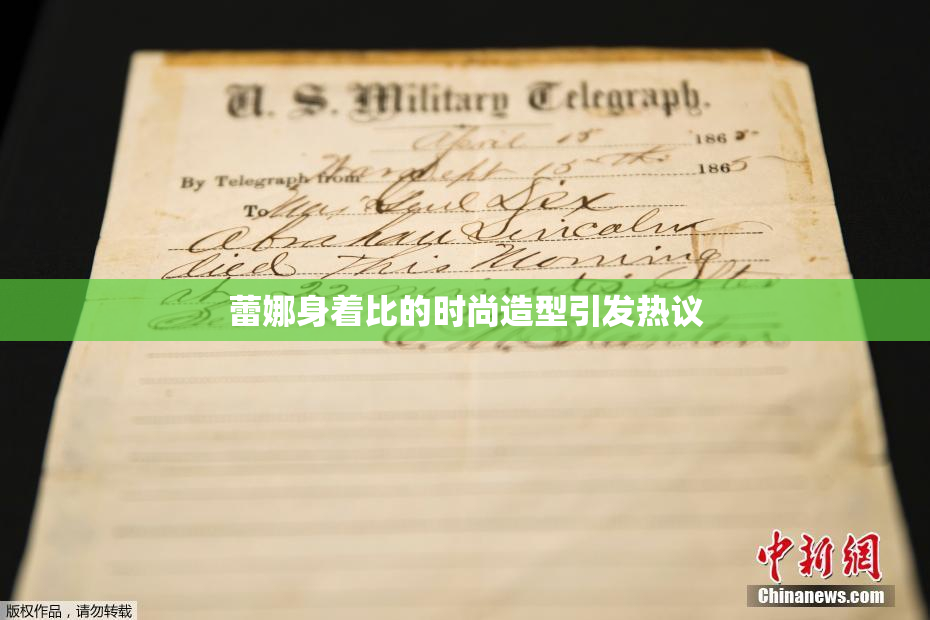 U. S. Military Telegraph.
April 15 1865
By Telegraph from War Dept 15th 1865
To Maj Genl Dix
Abraham Lincoln
died This Morning
at 22 minutes after
蕾娜身着比的时尚造型引发热议
Stanton
中新网
Chinanews.com
版权作品，请勿转载